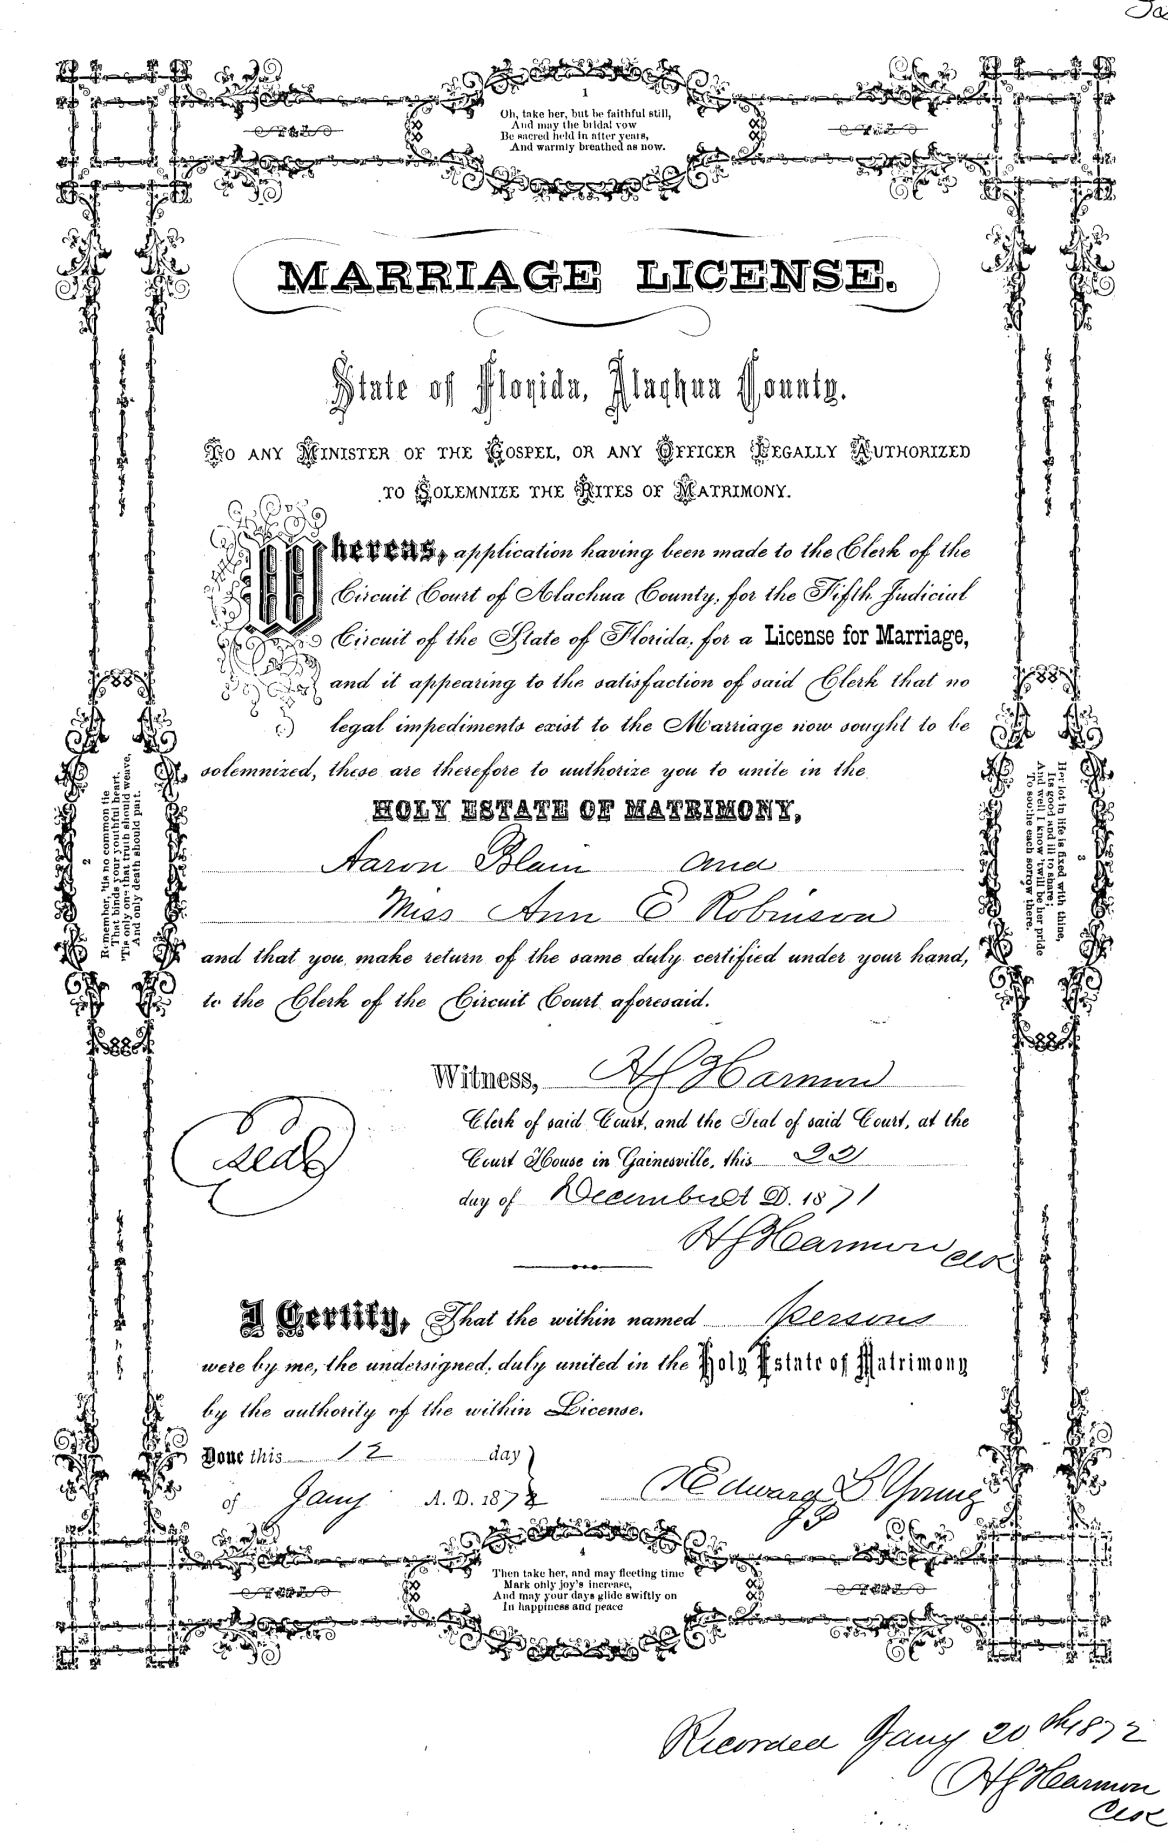 1
Oh, take her, but be faithful still,
And may the bridal vow
Be sacred held in after years,
And warmly breathed as now.
MARRIAGE LICENSE.
State of Florida, Alachua County.
TO ANY MINISTER OF THE GOSPEL, OR ANY OFFICER LEGALLY AUTHORIZED
TO SOLEMNIZE THE RITES OF MATRIMONY.
Whereas, application having been made to the Clerk of the
Circuit Court of Alachua County, for the Fifth Judicial
Circuit of the State of Florida, for a License for Marriage,
and it appearing to the satisfaction of said Clerk that no
legal impediments exist to the Marriage now sought to be
solemnized, these are therefore to authorize you to unite in the
HOLY ESTATE OF MATRIMONY,
Aaron Blain and
Miss Ann E Robinson
and that you make return of the same duly certified under your hand,
to the Clerk of the Circuit Court aforesaid.
2
Remember, 'tis no common tie
That binds your youthful heart,
'Tis only one that truth should weave,
And only death should part.
3
Her lot in life is fixed with thine,
Its good and ill to share;
And well I know 'twill be her pride
To soothe each sorrow there.
Witness, HJ Harmon
Clerk of said Court, and the Seal of said Court, at the
Court House in Gainesville, this 22
day of December A D. 1871
HJ Harmon Clk
Seal
I Certify, That the within named persons
were by me, the undersigned, duly united in the Holy Estate of Matrimony
by the authority of the within License.
Done this 12 day
of Jany A. D. 1872
Edward D Young
JP
4
Then take her, and may fleeting time
Mark only joy's increase,
And may your days glide swiftly on
In happiness and peace
Recorded Jany 20th 1872
HJ Harmon
Clk